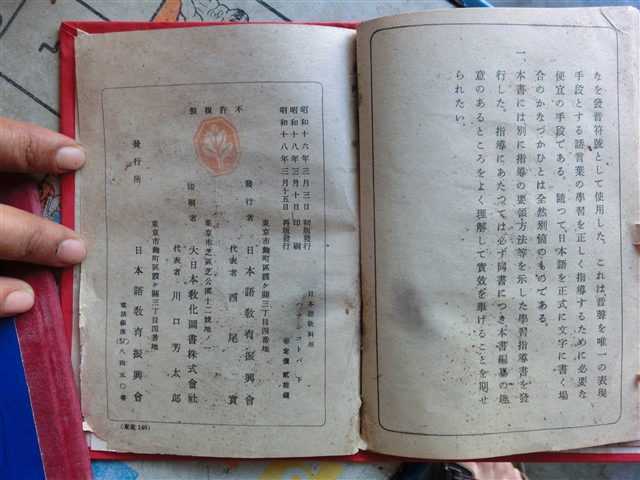 なを發音符號として使用した。これは音聲を唯一の表現
手段とする話言葉の學習を正しく指導するために必要な
便宜の手段である。隨つて日本語を正式に文字に書く場
合のかなづかひとは全然別値のものである。
一、本書には別に指導の要領方法等を示した學習指導書を發
行した。指導にあたつては必ず同書につき本書編纂の趣
意のあるところをよく理解して實效を擧げることを期せ
られたい。
不許複製
昭和十六年三月三日 初版發行
昭和十八年三月十日 印刷
昭和十八年三月十五日 再版發行
日本語教科用
ハナシコトバ 下
定價 貳拾錢
東京市麹町區霞ヶ關三丁目四番地
發行者 日本語教育振興會
代表者 西尾實
東京市芝區芝公園十二號地ノ一
印刷者 大日本教化圖書株式會社
代表者 川口芳太郎
東京市麹町區霞ヶ關三丁目四番地
發行所 日本語教育振興會
電話銀座(57)八四五〇番
(東東 148)